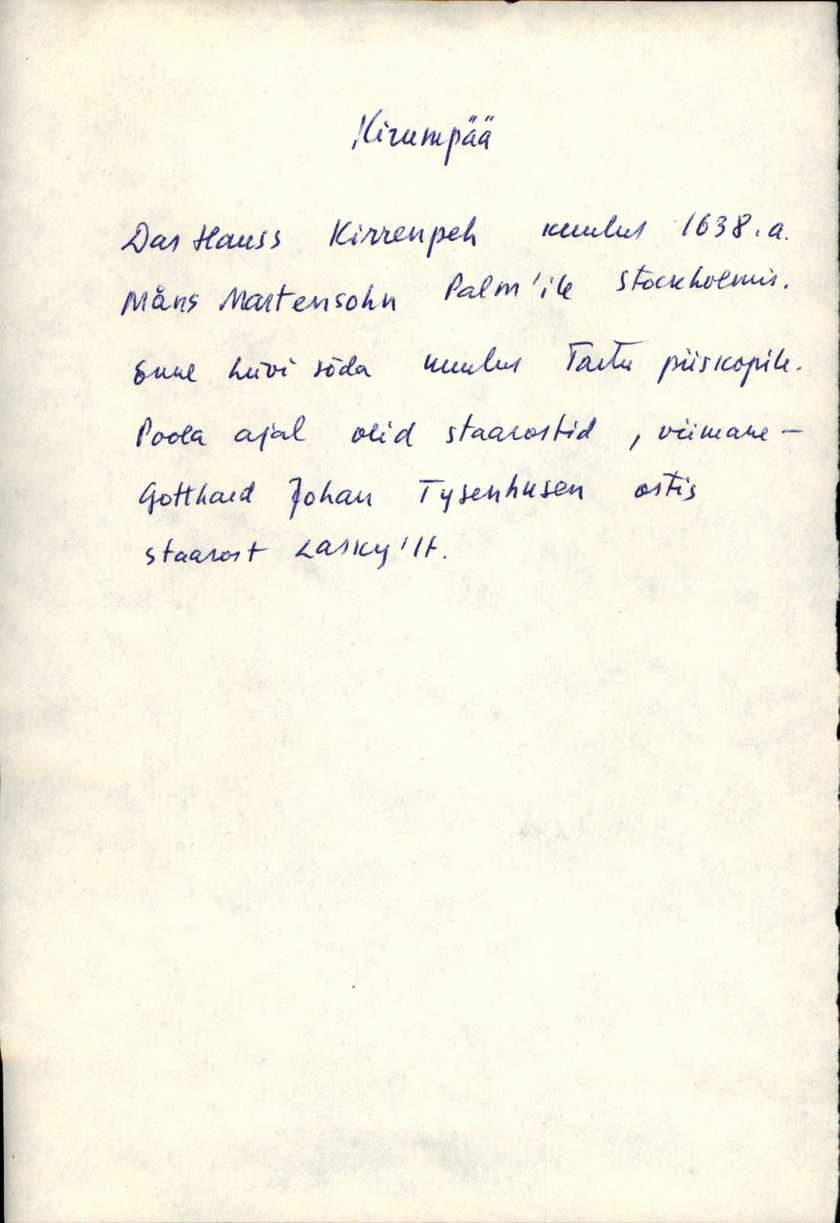 Kirumpää
Das Hauss Kirrenpeh kuulus 1638. a.
Måns Martensohn Palm'ile Stockholmis.
Enne Liivi sõda kuulus Tartu piiskopile.
Poola ajal olid staarostid, viimane -
Gotthard Johan Tysenhusen ostis
staarost Lasky'lt.